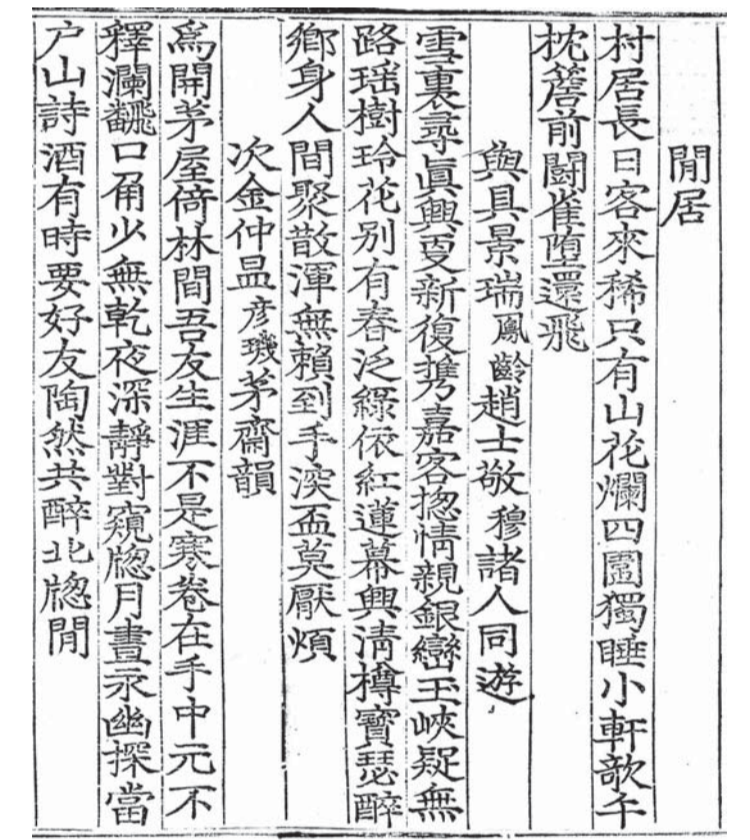 閒居
村居長日客來稀只有山花爛四圍獨睡小軒欹午
枕簷前鬪雀墮還飛
與具景瑞鳳齡趙士敬穆諸人同遊
雪裏尋眞興更新復携嘉客揔情親銀巒玉峽疑無
路瑤樹玲花别有春泛綠依紅蓮幕興淸樽寶瑟醉
鄕身人間聚散渾無賴到手深盃莫厭頻
次金仲昷彦璣茅齋韻
爲開茅屋倚林間吾友生涯不是寒卷在手中元不
釋瀾飜口角少無乾夜深靜對窺牕月晝永幽探當
户山詩酒有時要好友陶然共醉北牕閒